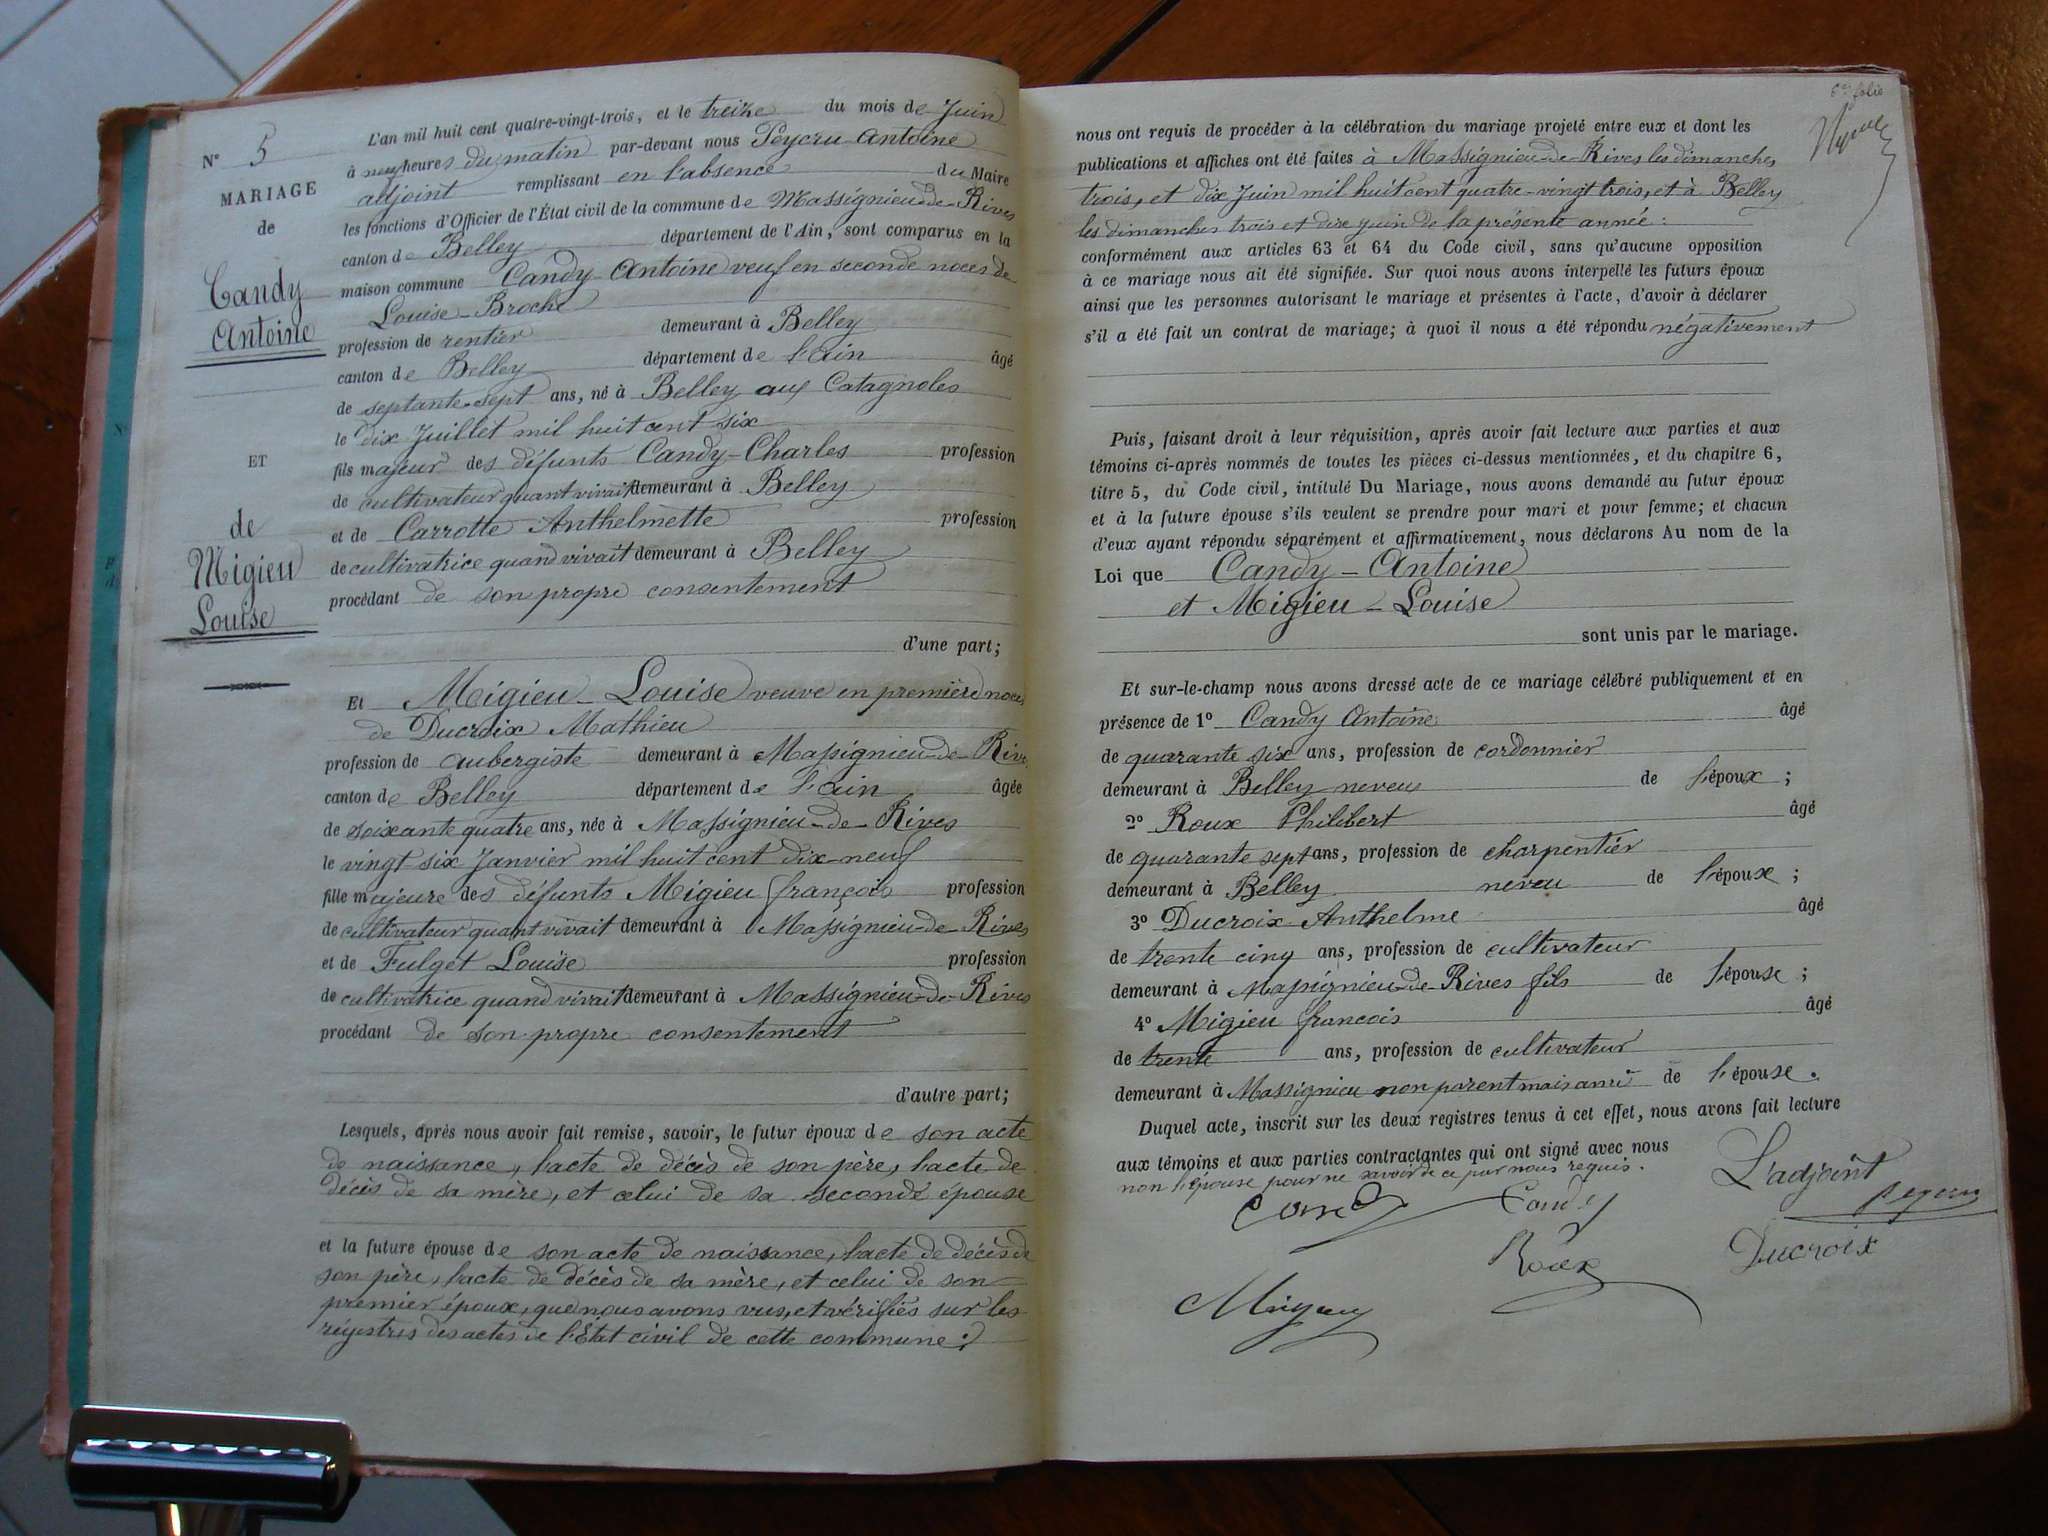 N° 5
MARIAGE
de
Candy
Antoine
ET
de
Migieu
Louise
L'an mil huit cent quatre-vingt-trois, et le treize du mois de Juin
à neuf heures du matin par-devant nous Peycru Antoine
adjoint remplissant en l'absence du Maire
les fonctions d'Officier de l'État civil de la commune de Massignieu-de-Rives
canton de Belley département de l'Ain, sont comparus en la
maison commune Candy Antoine veuf en seconde noces de
Louise Broche
profession de rentier demeurant à Belley
canton de Belley département de l'ain âgé
de septante-sept ans, né à Belley aux Catagnoles
le dix Juillet mil huit cent six
fils majeur des défunts Candy-Charles profession
de cultivateur quant vivait demeurant à Belley
et de Carrotte Anthelmette profession
de cultivatrice quand vivait demeurant à Belley
procédant de son propre consentement
d'une part;
Et Migieu Louise veuve en première noces
de Ducroix Mathieu
profession de aubergiste demeurant à Massignieu-de-Rives
canton de Belley département de l'ain âgée
de soixante quatre ans, née à Massignieu-de-Rives
le vingt six Janvier mil huit cent dix-neuf
fille majeure des défunts Migieu françois profession
de cultivateur quant vivait demeurant à Massignieu-de-Rives
et de Fulget Louise profession
de cultivatrice quand vivait demeurant à Massignieu-de-Rives
procédant de son propre consentement
d'autre part;
Lesquels, après nous avoir fait remise, savoir, le futur époux de son acte
de naissance, l'acte de décès de son père, l'acte de
décès de sa mère, et celui de sa seconde épouse
et la future épouse de son acte de naissance, l'acte de décès de
son père, l'acte de décès de sa mère, et celui de son
premier époux, que nous avons vus, et vérifiés sur les
régistres des actes de l'État civil de cette commune;
folio
nous ont requis de procéder à la célébration du mariage projeté entre eux et dont les
publications et affiches ont été faites à Massignieu-de-Rives les dimanches
trois, et dix Juin mil huit cent quatre-vingt trois, et à Belley
les dimanches trois et dixe juin de la présente année:
conformément aux articles 63 et 64 du Code civil, sans qu'aucune opposition
à ce mariage nous ait été signifiée. Sur quoi nous avons interpellé les futurs époux
ainsi que les personnes autorisant le mariage et présentes à l'acte, d'avoir à déclarer
s'il a été fait un contrat de mariage; à quoi il nous a été répondu négativement
Puis, faisant droit à leur réquisition, après avoir fait lecture aux parties et aux
témoins ci-après nommés de toutes les pièces ci-dessus mentionnées, et du chapitre 6,
titre 5, du Code civil, intitulé Du Mariage, nous avons demandé au futur époux
et à la future épouse s'ils veulent se prendre pour mari et pour femme; et chacun
d'eux ayant répondu séparément et affirmativement, nous déclarons Au nom de la
Loi que Candy-Antoine
et Migieu-Louise
sont unis par le mariage.
Et sur-le-champ nous avons dressé acte de ce mariage célébré publiquement et en
présence de 1° Candy Antoine âgé
de quarante six ans, profession de cordonnier
demeurant à Belley neveu de l'époux;
2° Roux Philibert âgé
de quarante sept ans, profession de charpentier
demeurant à Belley neveu de l'époux;
3° Ducroix Anthelme âgé
de trente cinq ans, profession de cultivateur
demeurant à Massignieu-de-Rives fils de l'épouse;
4° Migieu françois âgé
de trente ans, profession de cultivateur
demeurant à Massignieu non parent mais ami de l'épouse.
Duquel acte, inscrit sur les deux registres tenus à cet effet, nous avons fait lecture
aux témoins et aux parties contractantes qui ont signé avec nous
non l'épouse pour ne savoir de ce par nous requis.
L'adjoint
Candy
Roux
Ducroix